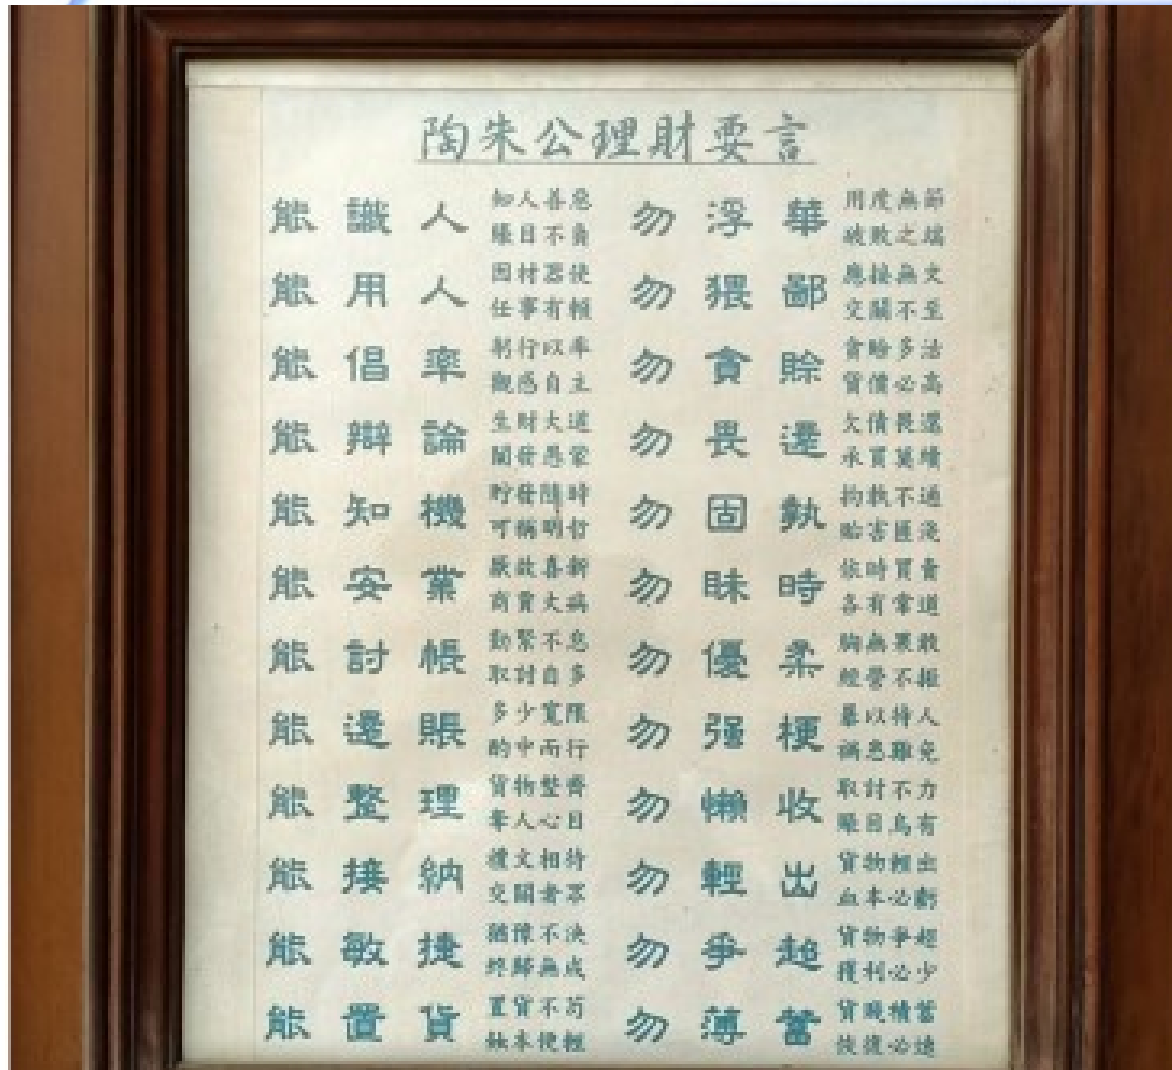 陶朱公理財要言
能識人
知人善惡
賬目不負
勿浮華
用度無節
破敗之端
能用人
因材器使
任事有賴
勿猥鄙
應接無文
交關不至
能倡率
躬行以率
觀感自主
勿貪賒
貪賒多沽
貨價必高
能辯論
生財大道
闡發愚蒙
勿畏還
欠債畏還
承買莫續
能知機
貯發隨時
可稱明哲
勿固執
拘執不通
貽害匪淺
能安業
厭故喜新
商賈大病
勿昧時
依時買賣
各有常道
能討帳
勤緊不怠
取討自多
勿優柔
胸無果敢
經營不振
能還賬
多少寬限
酌中而行
勿强梗
暴以待人
禍患難免
能整理
貨物整齊
奪人心目
勿懶收
取討不力
賬目烏有
能接納
禮文相待
交關者眾
勿輕出
貨物輕出
血本必虧
能敏捷
猶豫不決
終歸無成
勿爭趨
貨物爭趨
獲利必少
能置貨
置貨不苟
蝕本便輕
勿薄蓄
貨賤積蓄
恢復必速